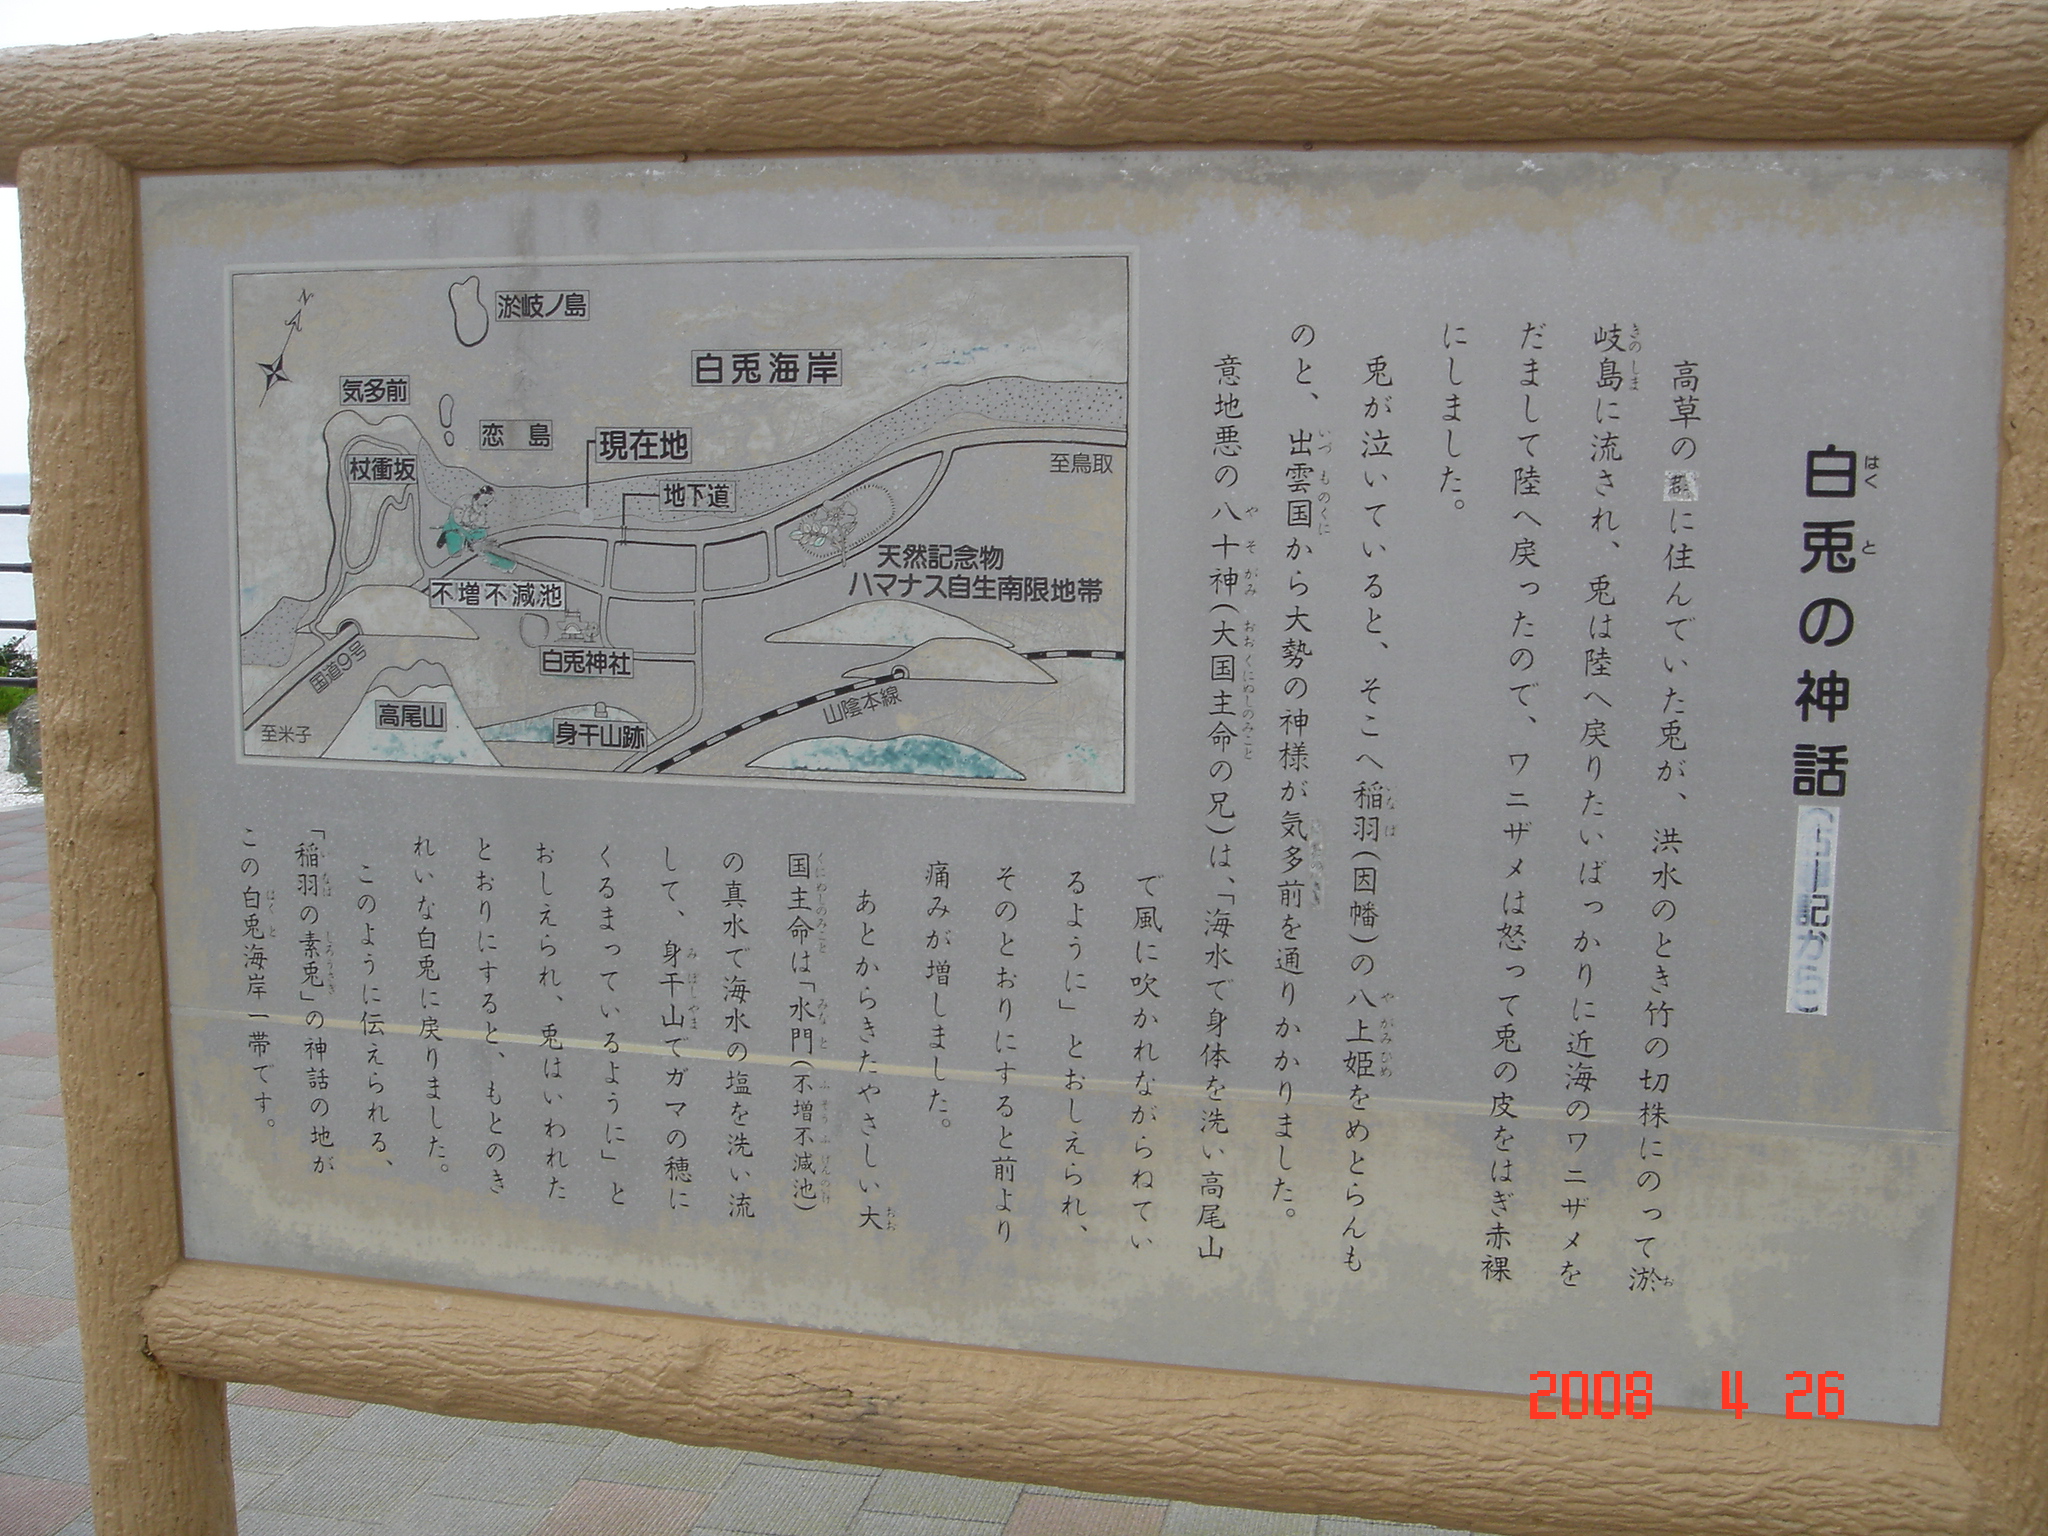 白兎の神話
高草の郡に住んでいた兎が、洪水のとき竹の切株にのって淤
岐島に流され、兎は陸へ戻りたいばっかりに近海のワニザメを
だまして陸へ戻ったので、ワニザメは怒って兎の皮をはぎ赤裸
にしました。
兎が泣いていると、そこへ稲羽(因幡)の八上姫をめとらんも
のと、出雲国から大勢の神様が気多前を通りかかりました。
意地悪の八十神(大国主命の兄)は、「海水で身体を洗い高尾山
で風に吹かれながらねてい
るように」とおしえられ、
そのとおりにすると前より
痛みが増しました。
あとからきたやさしい大
国主命は「水門(不増不減池)
の真水で海水の塩を洗い流
して、身干山でガマの穂に
くるまっているように」と
おしえられ、兎はいわれた
とおりにすると、もとのき
れいな白兎に戻りました。
このように伝えられる、
「稲羽の素兎」の神話の地が
この白兎海岸一帯です。
淤岐ノ島
白兎海岸
気多前
恋島
現在地
杖衝坂
地下道
至鳥取
天然記念物
ハマナス自生南限地帯
不増不減池
白兎神社
国道9号
高尾山
身干山跡
山陰本線
至米子
N
2008 4 26